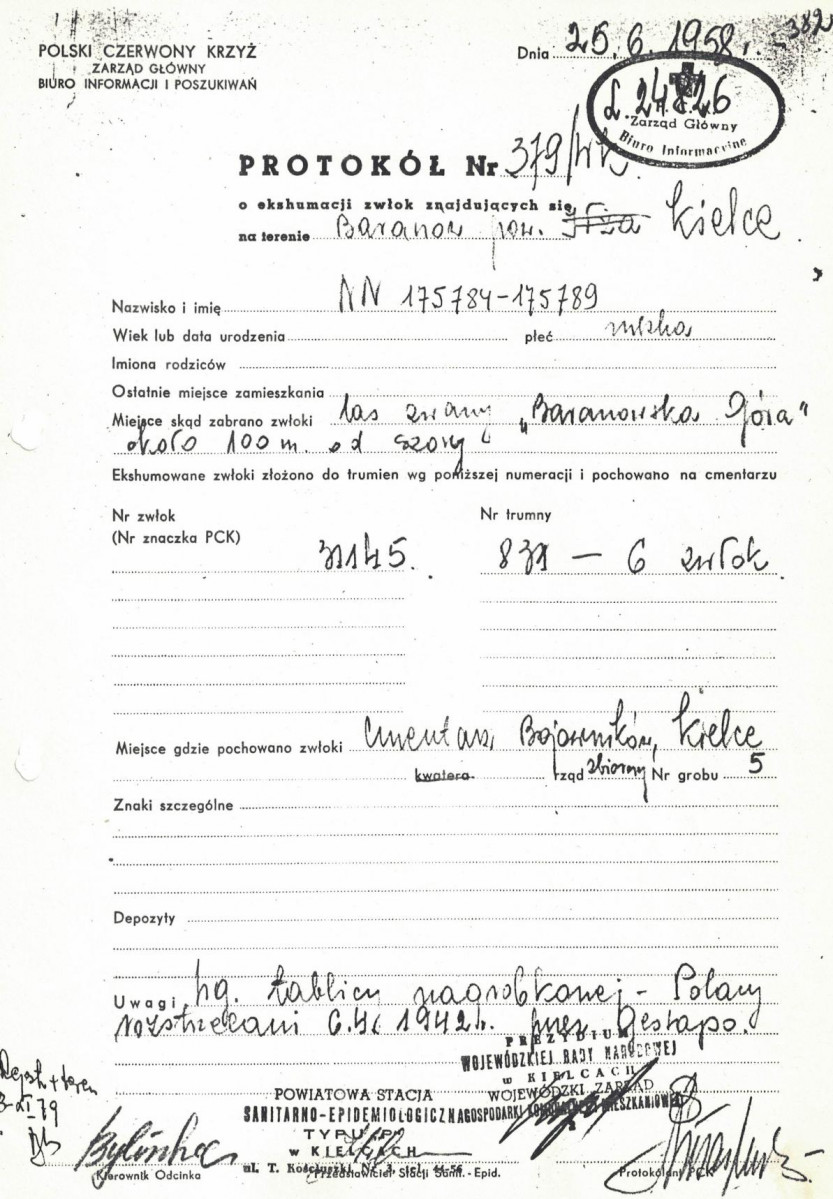 382
POLSKI CZERWONY KRZYŻ
ZARZĄD GŁÓWNY
BIURO INFORMACJI I POSZUKIWAŃ
Dnia 25.6.1958 r.
Ł. 24826
Zarząd Główny
Biuro Informacyjne
PROTOKÓŁ Nr 379/
o ekshumacji zwłok znajdujących się
na terenie Baranów pow. Iłża Kielce
Nazwisko i imię NN 175784-175789
Wiek lub data urodzenia płeć męska
Imiona rodziców
Ostatnie miejsce zamieszkania
Miejsce skąd zabrano zwłoki las zwany „Baranowska Góra"
około 100 m. od szosy
Ekshumowane zwłoki złożono do trumien wg poniższej numeracji i pochowano na cmentarzu
Nr zwłok Nr trumny
(Nr znaczka PCK)
831 — 6 zwłok
Miejsce gdzie pochowano zwłoki Cmentarz Bojowników, Kielce
kwatera rząd zbiorowy Nr grobu 5
Znaki szczególne
Depozyty
Uwagi wg. tablicy nagrobkowej - Polacy
rozstrzelani 1942 r. przez Gestapo.
PREZYDIUM
WOJEWÓDZKIEJ RADY NARODOWEJ
w KIELCACH
WOJEWÓDZKI ZARZĄD
GOSPODARKI KOMUNALNEJ I MIESZKANIOWEJ
POWIATOWA STACJA
SANITARNO-EPIDEMIOLOGICZNA
w KIELCACH
ul. T. Kościuszki Nr 3, tel. 44-56
Kierownik Odcinka Przedstawiciel Stacji Sanit. - Epid. Protokólant PCK